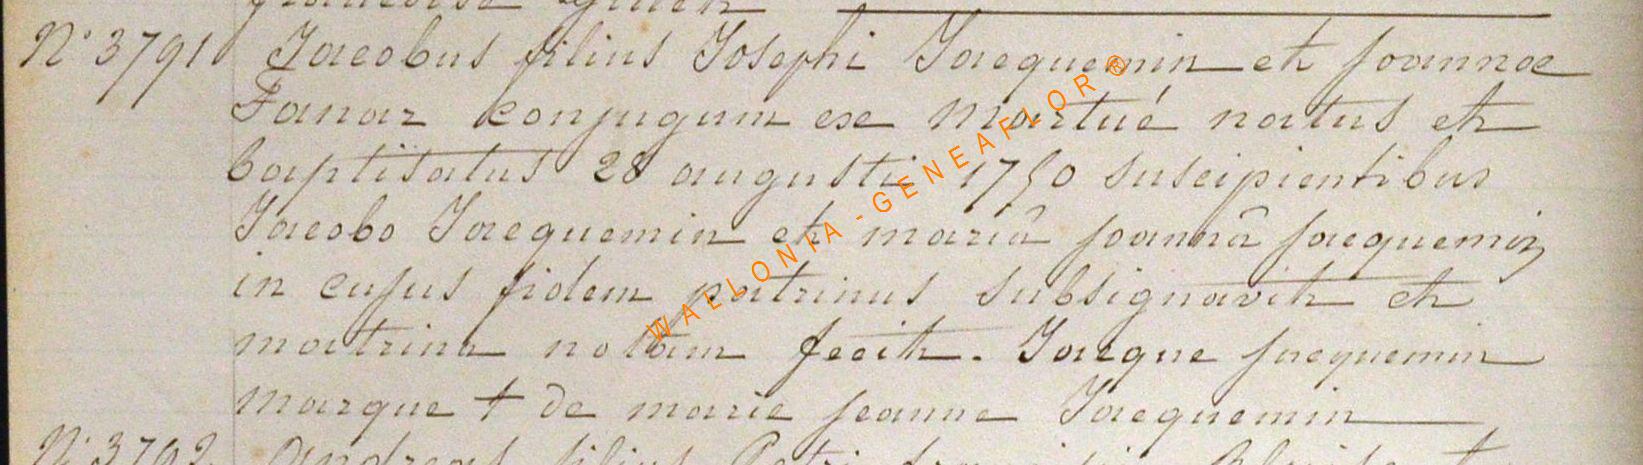 N° 3791 Jacobus filius Josephi Jacquemin et Joannae
Fanaz conjugum ex Martué natus et
baptisatus 28 augusti 1750 suscipientibus
Jacobo Jacquemin et mariâ joannâ jacquemin
in cujus fidem patrinus subsignavit et
matrina notam fecit. Jacque jacquemin
marque + de marie jeanne Jacquemin
N° 3792 Andreas filius Petri
WALLONIA-GENEAFLOR®